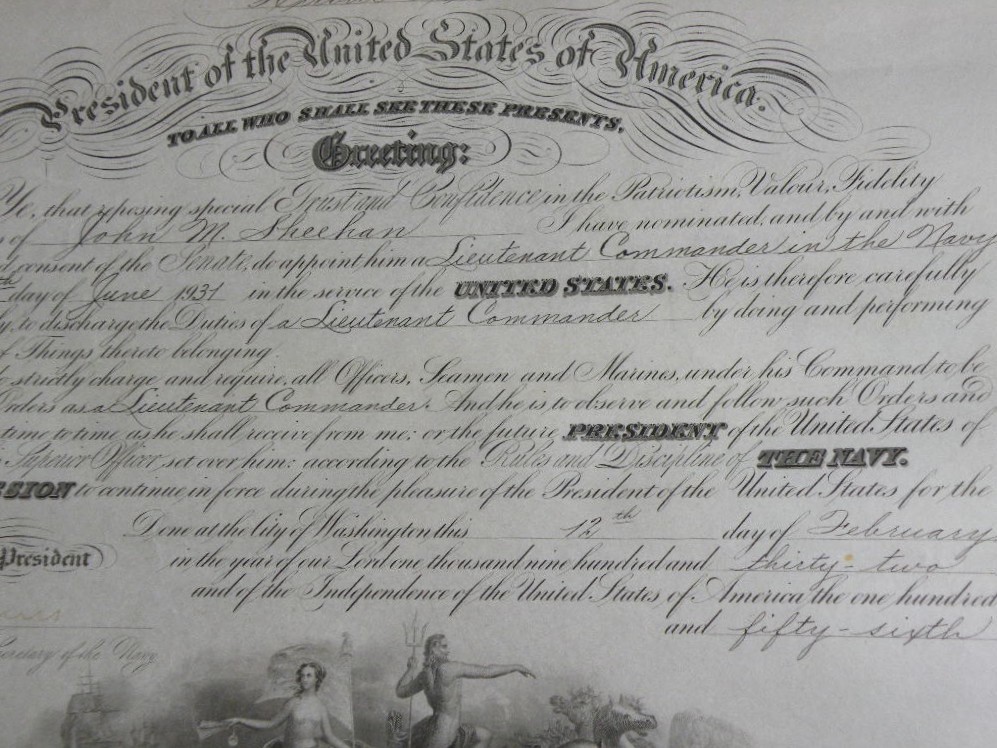 President of the United States of America.
TO ALL WHO SHALL SEE THESE PRESENTS,
Greeting:
Ye, that reposing special Trust and Confidence in the Patriotism, Valour, Fidelity
of John M. Sheehan I have nominated, and by and with
consent of the Senate, do appoint him a Lieutenant Commander in the Navy
th day of June 1931 in the service of the UNITED STATES. He is therefore carefully
to discharge the Duties of a Lieutenant Commander by doing and performing
of Things thereto belonging.
to strictly charge, and require, all Officers, Seamen and Marines, under his Command to be
Orders as a Lieutenant Commander. And he is to observe and follow such Orders and
time to time as he shall receive from me; or the future PRESIDENT of the United States of
Superior Officer, set over him: according to the Rules and Discipline of THE NAVY.
SION to continue in force during the pleasure of the President of the United States for the
Done at the City of Washington this 12th day of February
President in the year of our Lord one thousand nine hundred and thirty-two
and of the Independence of the United States of America the one hundred
and fifty-sixth
Secretary of the Navy